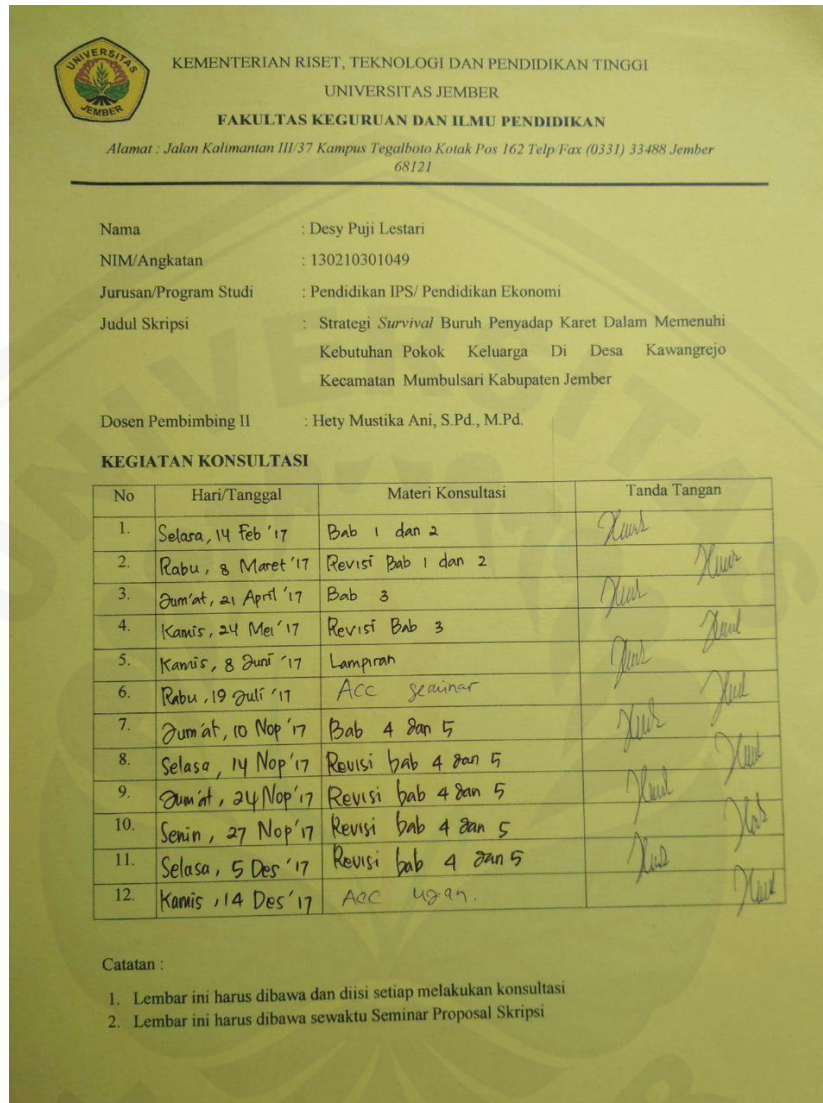 UNIVERSITAS
JEMBER
KEMENTERIAN RISET, TEKNOLOGI DAN PENDIDIKAN TINGGI
UNIVERSITAS JEMBER
FAKULTAS KEGURUAN DAN ILMU PENDIDIKAN
Alamat : Jalan Kalimantan III/37 Kampus Tegalboto Kotak Pos 162 Telp/Fax (0331) 33488 Jember
68121
Nama : Desy Puji Lestari
NIM/Angkatan : 130210301049
Jurusan/Program Studi : Pendidikan IPS/ Pendidikan Ekonomi
Judul Skripsi : Strategi Survival Buruh Penyadap Karet Dalam Memenuhi
Kebutuhan Pokok Keluarga Di Desa Kawangrejo
Kecamatan Mumbulsari Kabupaten Jember
Dosen Pembimbing II : Hety Mustika Ani, S.Pd., M.Pd.
KEGIATAN KONSULTASI
No Hari/Tanggal Materi Konsultasi Tanda Tangan
1. Selasa, 14 Feb '17 Bab 1 dan 2
2. Rabu, 8 Maret '17 Revisi Bab 1 dan 2
3. Jum'at, 21 April '17 Bab 3
4. Kamis, 24 Mei '17 Revisi Bab 3
5. Kamis, 8 Juni '17 Lampiran
6. Rabu, 19 Juli '17 ACC seminar
7. Jum'at, 10 Nop '17 Bab 4 dan 5
8. Selasa, 14 Nop '17 Revisi bab 4 dan 5
9. Jum'at, 24 Nop '17 Revisi bab 4 dan 5
10. Senin, 27 Nop '17 Revisi bab 4 dan 5
11. Selasa, 5 Des '17 Revisi bab 4 dan 5
12. Kamis, 14 Des '17 Acc ujian.
Catatan :
1. Lembar ini harus dibawa dan diisi setiap melakukan konsultasi
2. Lembar ini harus dibawa sewaktu Seminar Proposal Skripsi